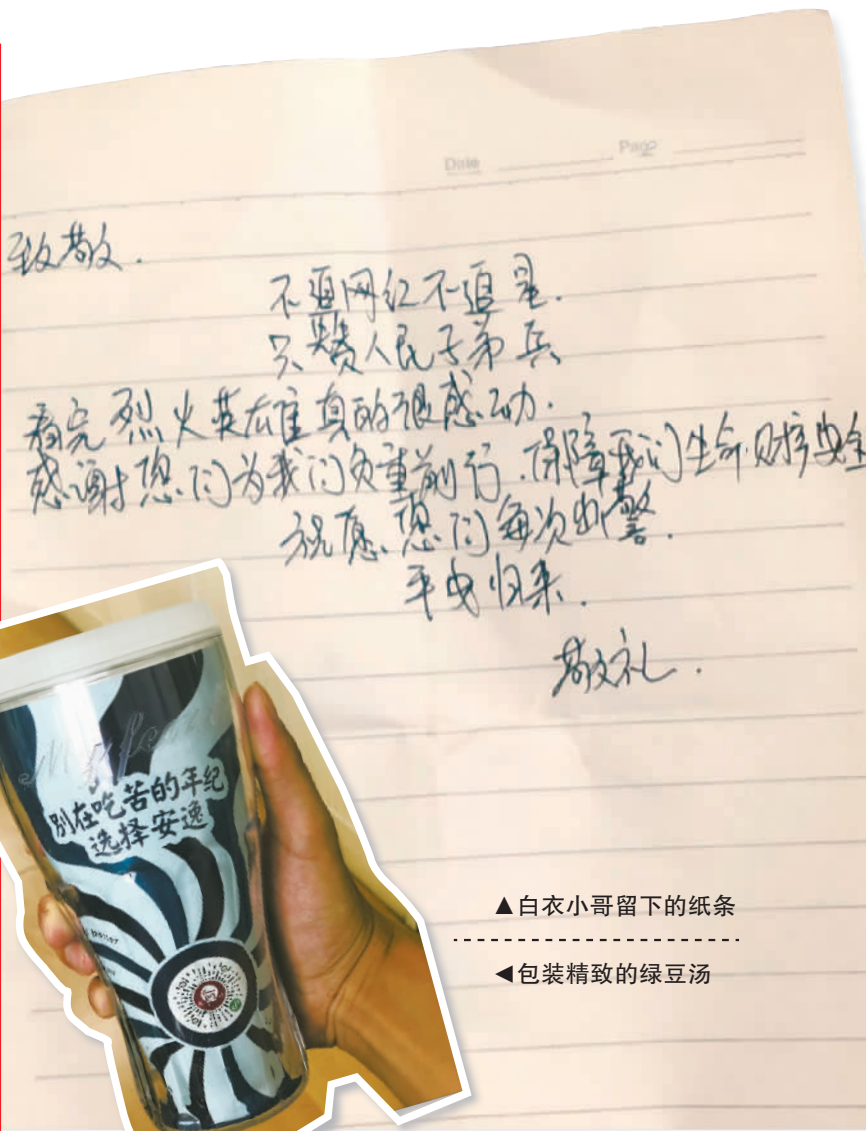 Date Page
致敬.
不追网红不追星.
只赞人民子弟兵
看完烈火英雄真的很感动.
感谢您们为我们负重前行.保障我们生命财产安全
祝愿您们每次出警.
平安归来.
敬礼.
别在吃苦的年纪
选择安逸
▲白衣小哥留下的纸条
◀包装精致的绿豆汤